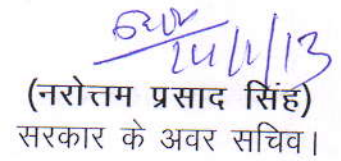 24/1/13
(नरोत्तम प्रसाद सिंह)
सरकार के अवर सचिव।